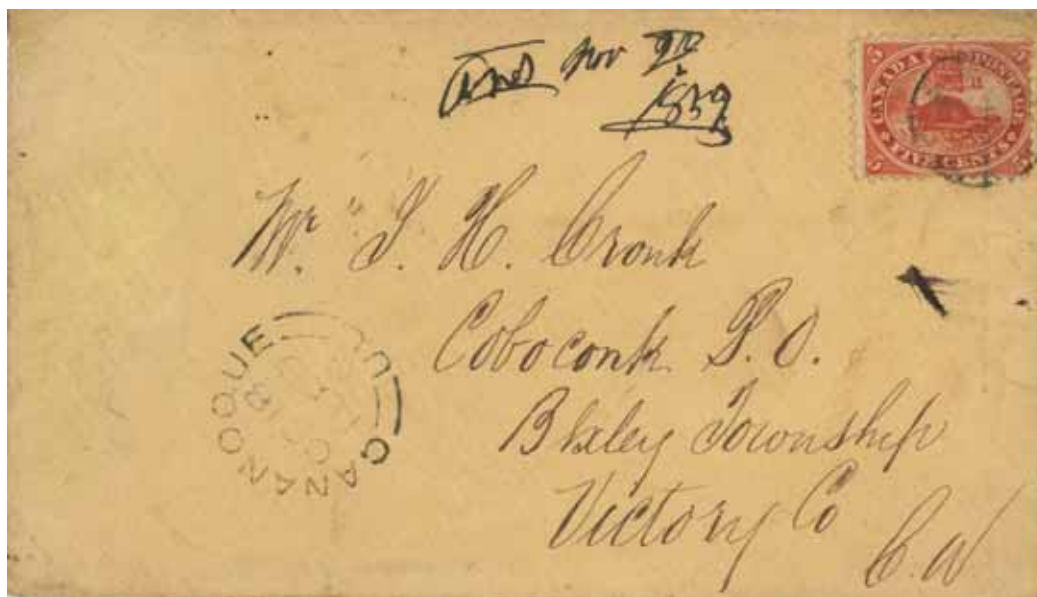 Ansd Nov 9th
1859
5 5
CANADA POSTAGE
FIVE CENTS
5 5
Mr. J. H. Cronk
Coboconk P.O.
Bexley Township
Victory Co
C.W
GANANOQUE